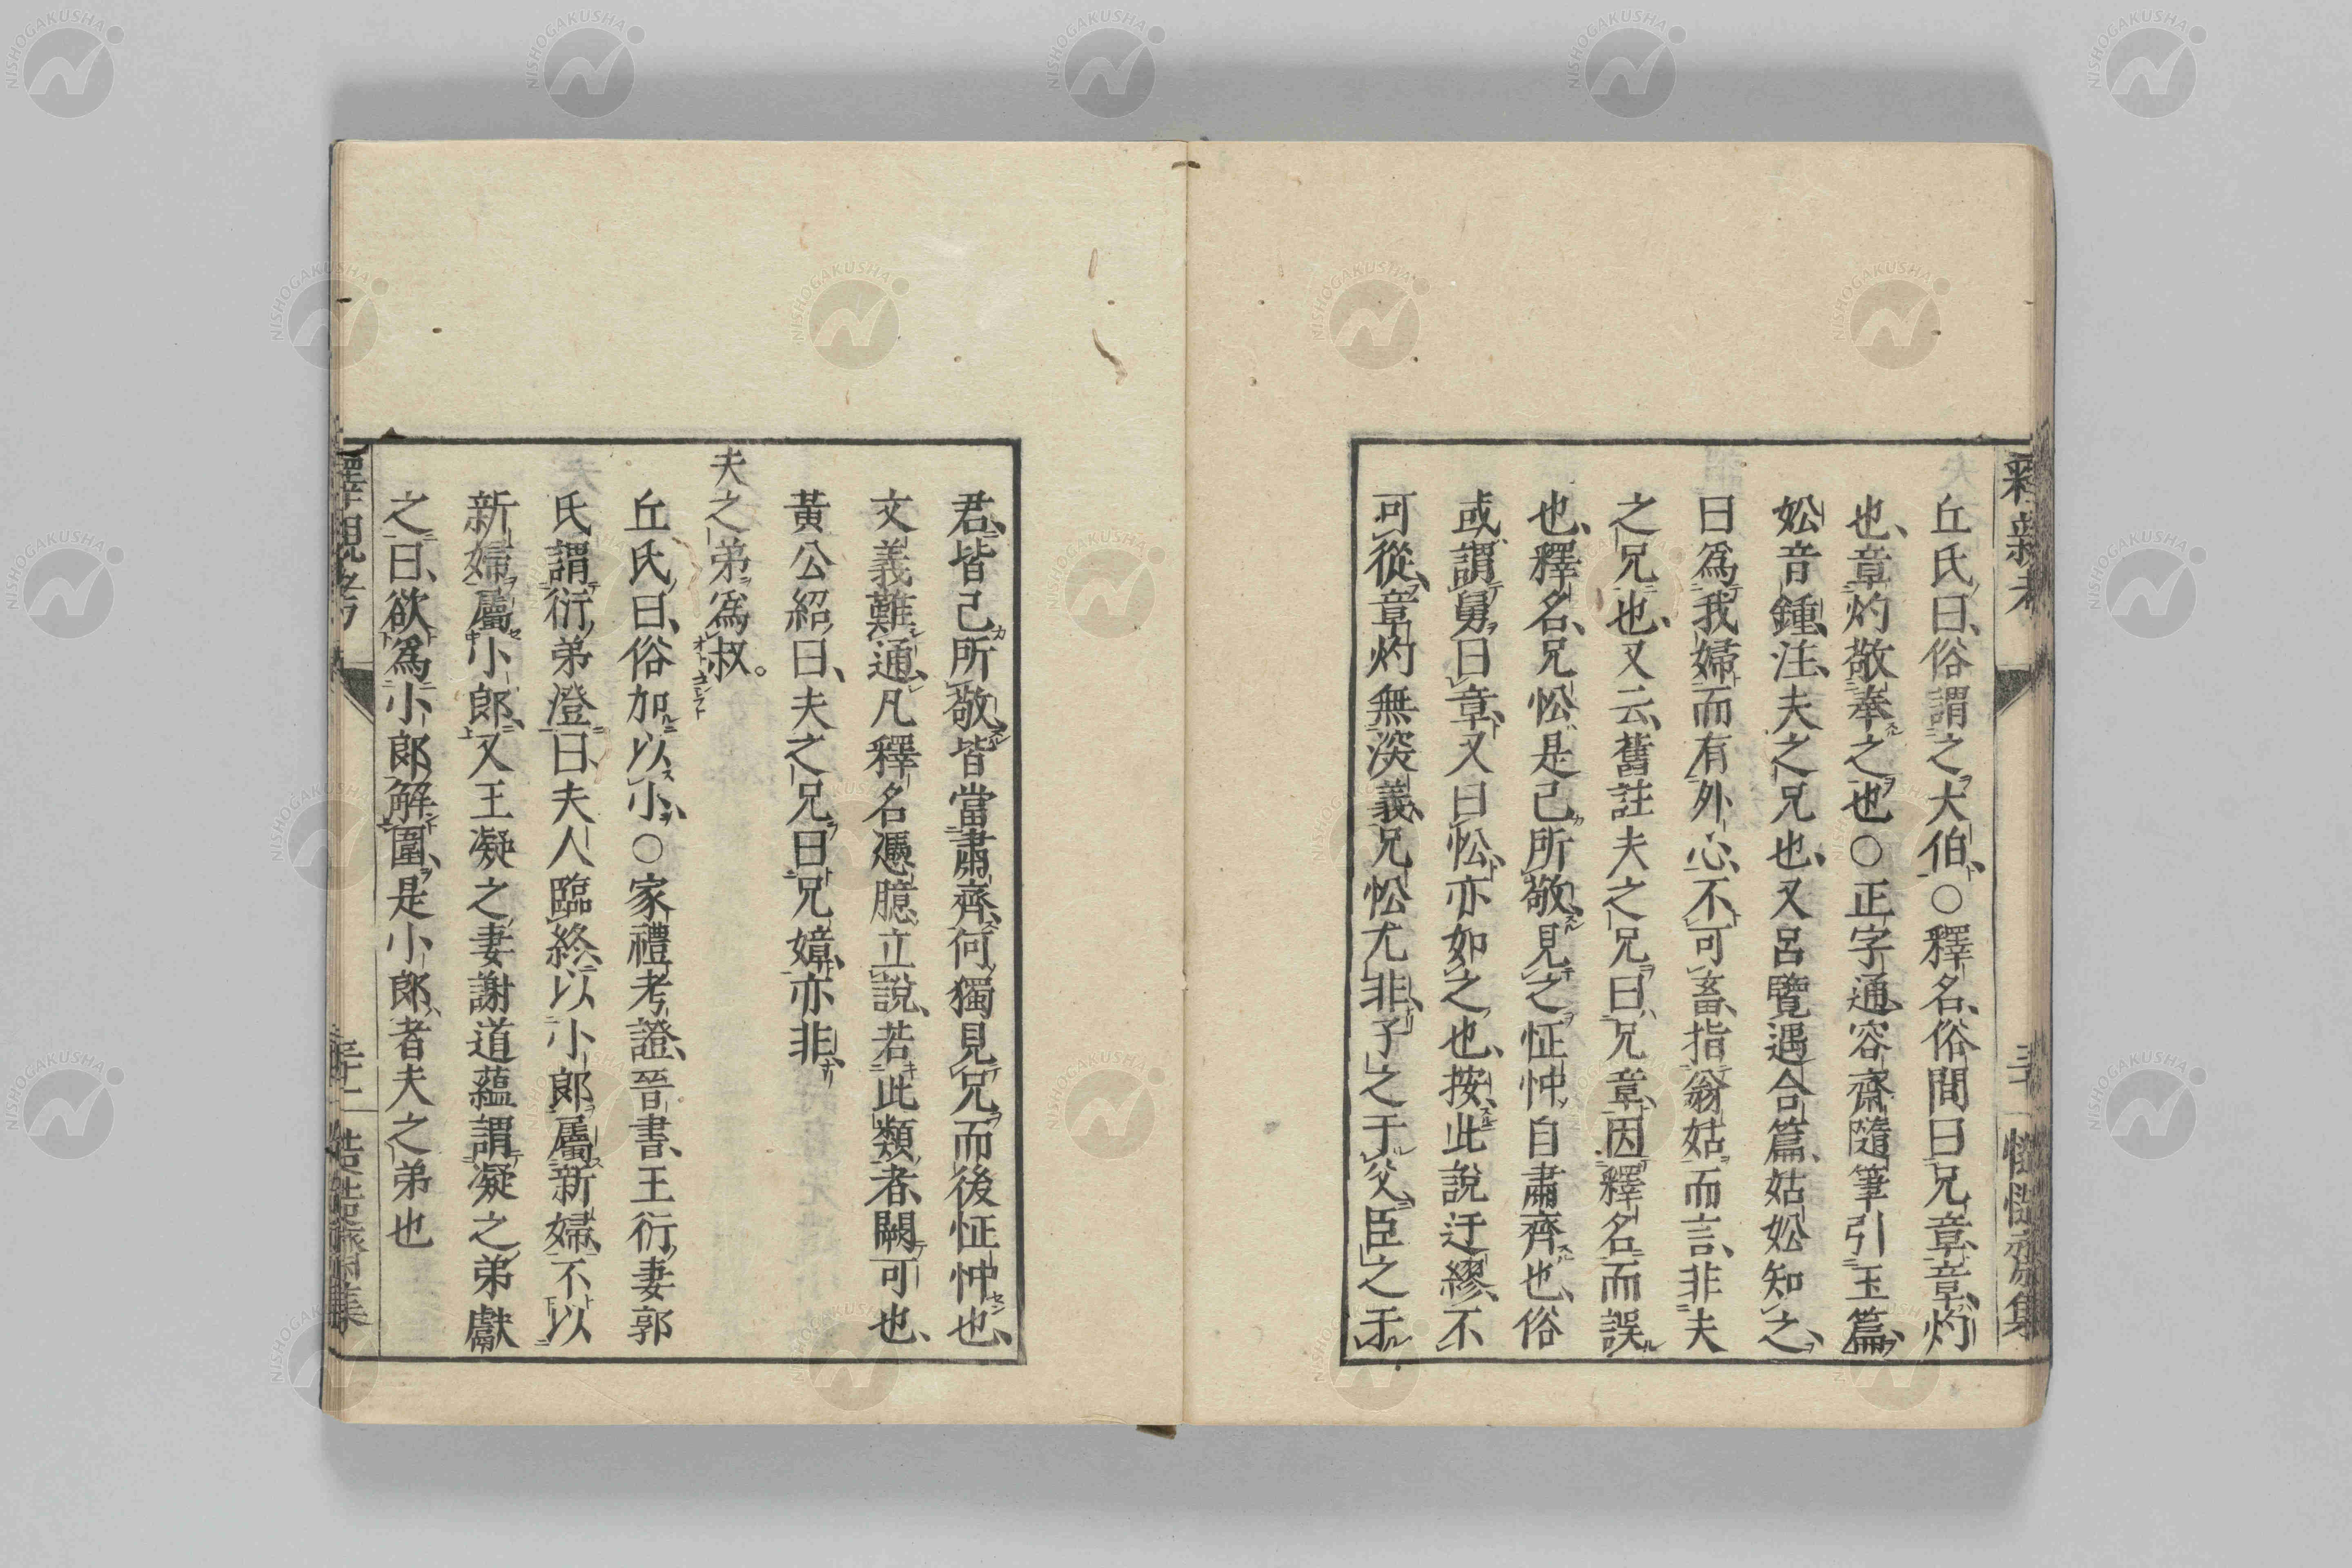 丘氏曰、俗謂之大伯、○釋名、俗間曰兄章、章、灼
也、章灼敬奉之也○正字通、容齋隨筆引玉篇、
妐音鍾、注、夫之兄也、又呂覽遇合篇、姑妐知之、
曰爲我婦而有外心、不可畜、指翁姑而言、非夫
之兄也、又云、舊註夫之兄曰、兄章、因釋名而誤
也、釋名、兄忪是己所敬、見之怔忡、自肅齊也、俗
或謂舅曰章、又曰忪、亦如之也、按、此說迂繆、不
可從、章灼無深義、兄忪尤非、子之于父、臣之于
君、皆己所敬、皆當肅齊、何獨見兄而後怔忡也、
文義難通、凡釋名憑臆立說、若此類者、闕可也、
黃公紹曰、夫之兄曰兄嫜、亦非、
夫之弟爲叔。
丘氏曰、俗加以小、○家禮考證、晉書、王衍妻郭
氏謂衍弟澄曰、夫人臨終、以小郎屬新婦、不以
新婦屬小郎、又王凝之妻謝道蘊謂凝之弟獻
之曰、欲爲小郎解圍、是小郎、者夫之弟也
釋親考
NISHOGAKUSHA